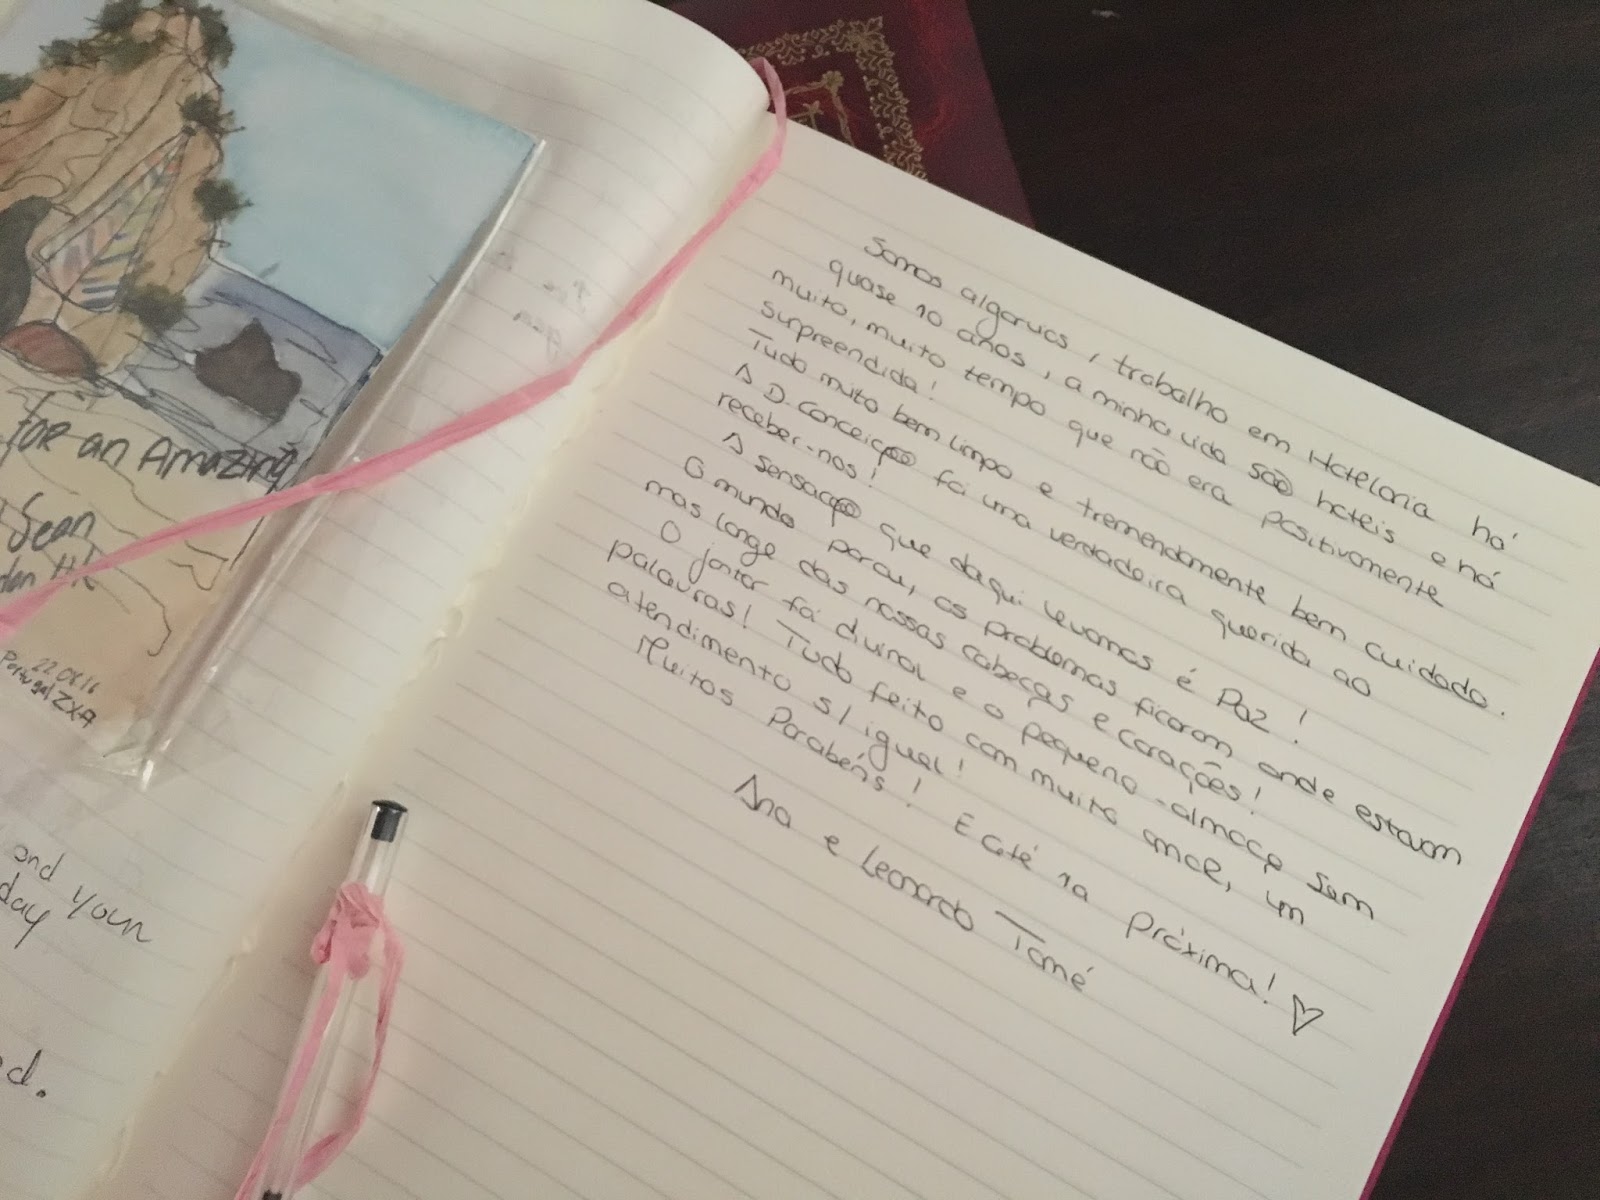 for an Amazing
Sean
22.08.16
Portugal ZXA
and your
day
d.
Somos algarvios, trabalho em Hotelaria há
quase 10 anos, a minha vida são hotéis e há
muito, muito tempo que não era positivamente
surpreendida!
Tudo muito bem limpo e tremendamente bem cuidado.
A D. Conceição foi uma verdadeira querida ao
receber-nos!
A sensação que daqui levamos é Paz!
O mundo parou, os problemas ficaram onde estavam
mas longe das nossas cabeças e corações!
O jantar foi divinal e o pequeno-almoço sem
palavras! Tudo feito com muito amor, um
atendimento s/ igual!
Muitos Parabéns! E até 1a próxima! ♡
Ana e Leonardo Tomé